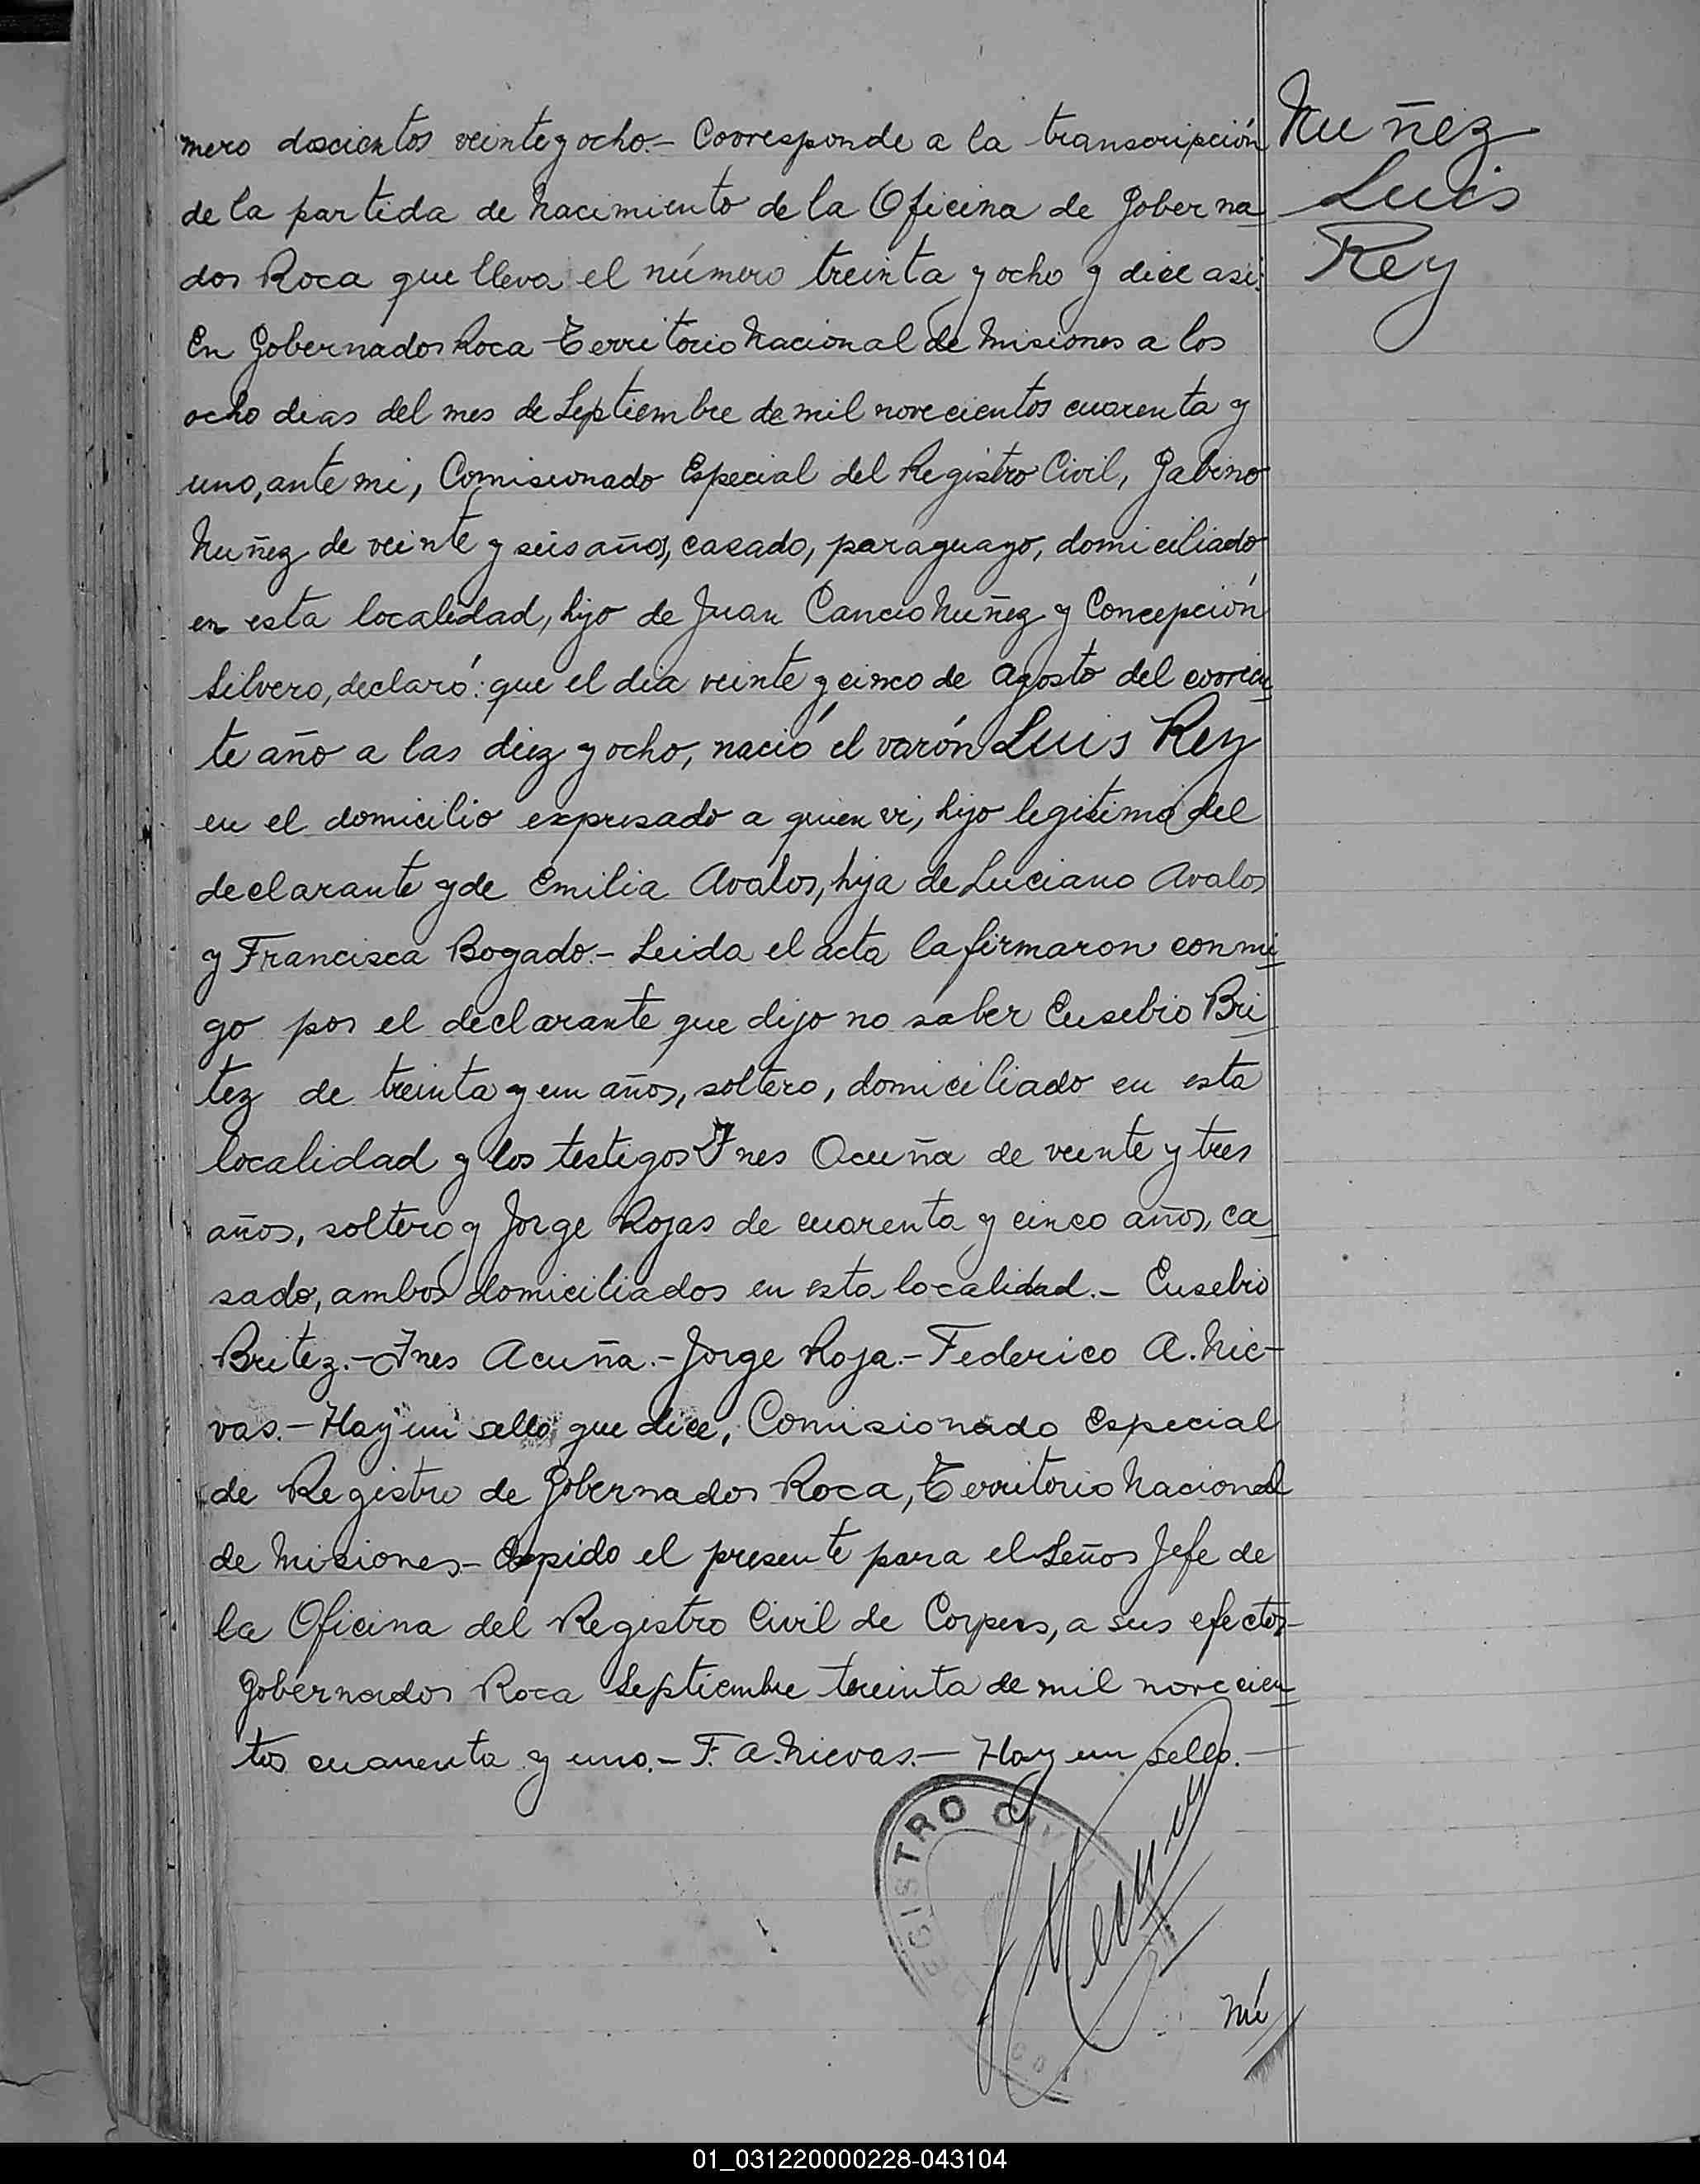 mero doscientos veinte y ocho.- Corresponde a la transcripción
de la partida de nacimiento de la Oficina de Goberna
dor Roca que lleva el número treinta y ocho y dice asi:
En Gobernador Roca Territorio Nacional de Misiones a los
ocho dias del mes de Septiembre de mil novecientos cuarenta y
uno, ante mi, Comisionado Especial del Registro Civil, Gabino
Nuñez de veinte y seis años, casado, paraguayo, domiciliado
en esta localidad, hijo de Juan Cancio Nuñez y Concepción
Silvero, declaró: que el dia veinte y cinco de Agosto del corrien
te año a las diez y ocho, nació el varón Luis Rey
en el domicilio expresado a quien vi, hijo legitimo del
declarante y de Emilia Avalos, hija de Luciano Avalos
y Francisca Bogado.- Leida el acta la firmaron conmi
go por el declarante que dijo no saber Eusebio Bri
tez de treinta y un años, soltero, domiciliado en esta
localidad y los testigos Ines Acuña de veinte y tres
años, soltero y Jorge Rojas de cuarenta y cinco años, ca
sado, ambos domiciliados en esta localidad.- Eusebio
Britez.- Ines Acuña.- Jorge Roja.- Federico A. Nie-
vas.- Hay un sello que dice, Comisionado Especial
de Registro de Gobernador Roca, Territorio Nacional
de Misiones- Expido el presente para el Señor Jefe de
la Oficina del Registro Civil de Corpus, a sus efectos-
Gobernador Roca Septiembre treinta de mil novecien
tos cuarenta y uno.- F. A. Nievas.- Hay un sello.-
Nuñez
Luis
Rey
REGISTRO CIVIL
Nú
01_031220000228-043104